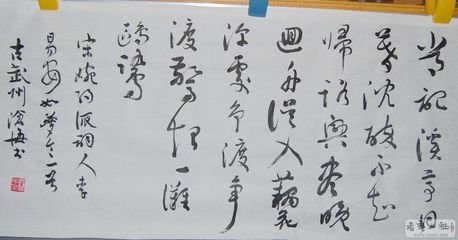 常記溪亭日
暮沈醉不知
歸路興盡晚
迴舟誤入藕花
深處爭渡爭
渡驚起一灘
鷗鷺
宋婉約派詞人李
易安如夢令一首
古武州滄海書